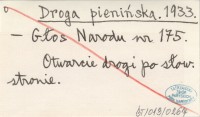 Droga pienińska. 1933.
- Głos Narodu nr 175.
Otwarcie drogi po słow.
stronie.